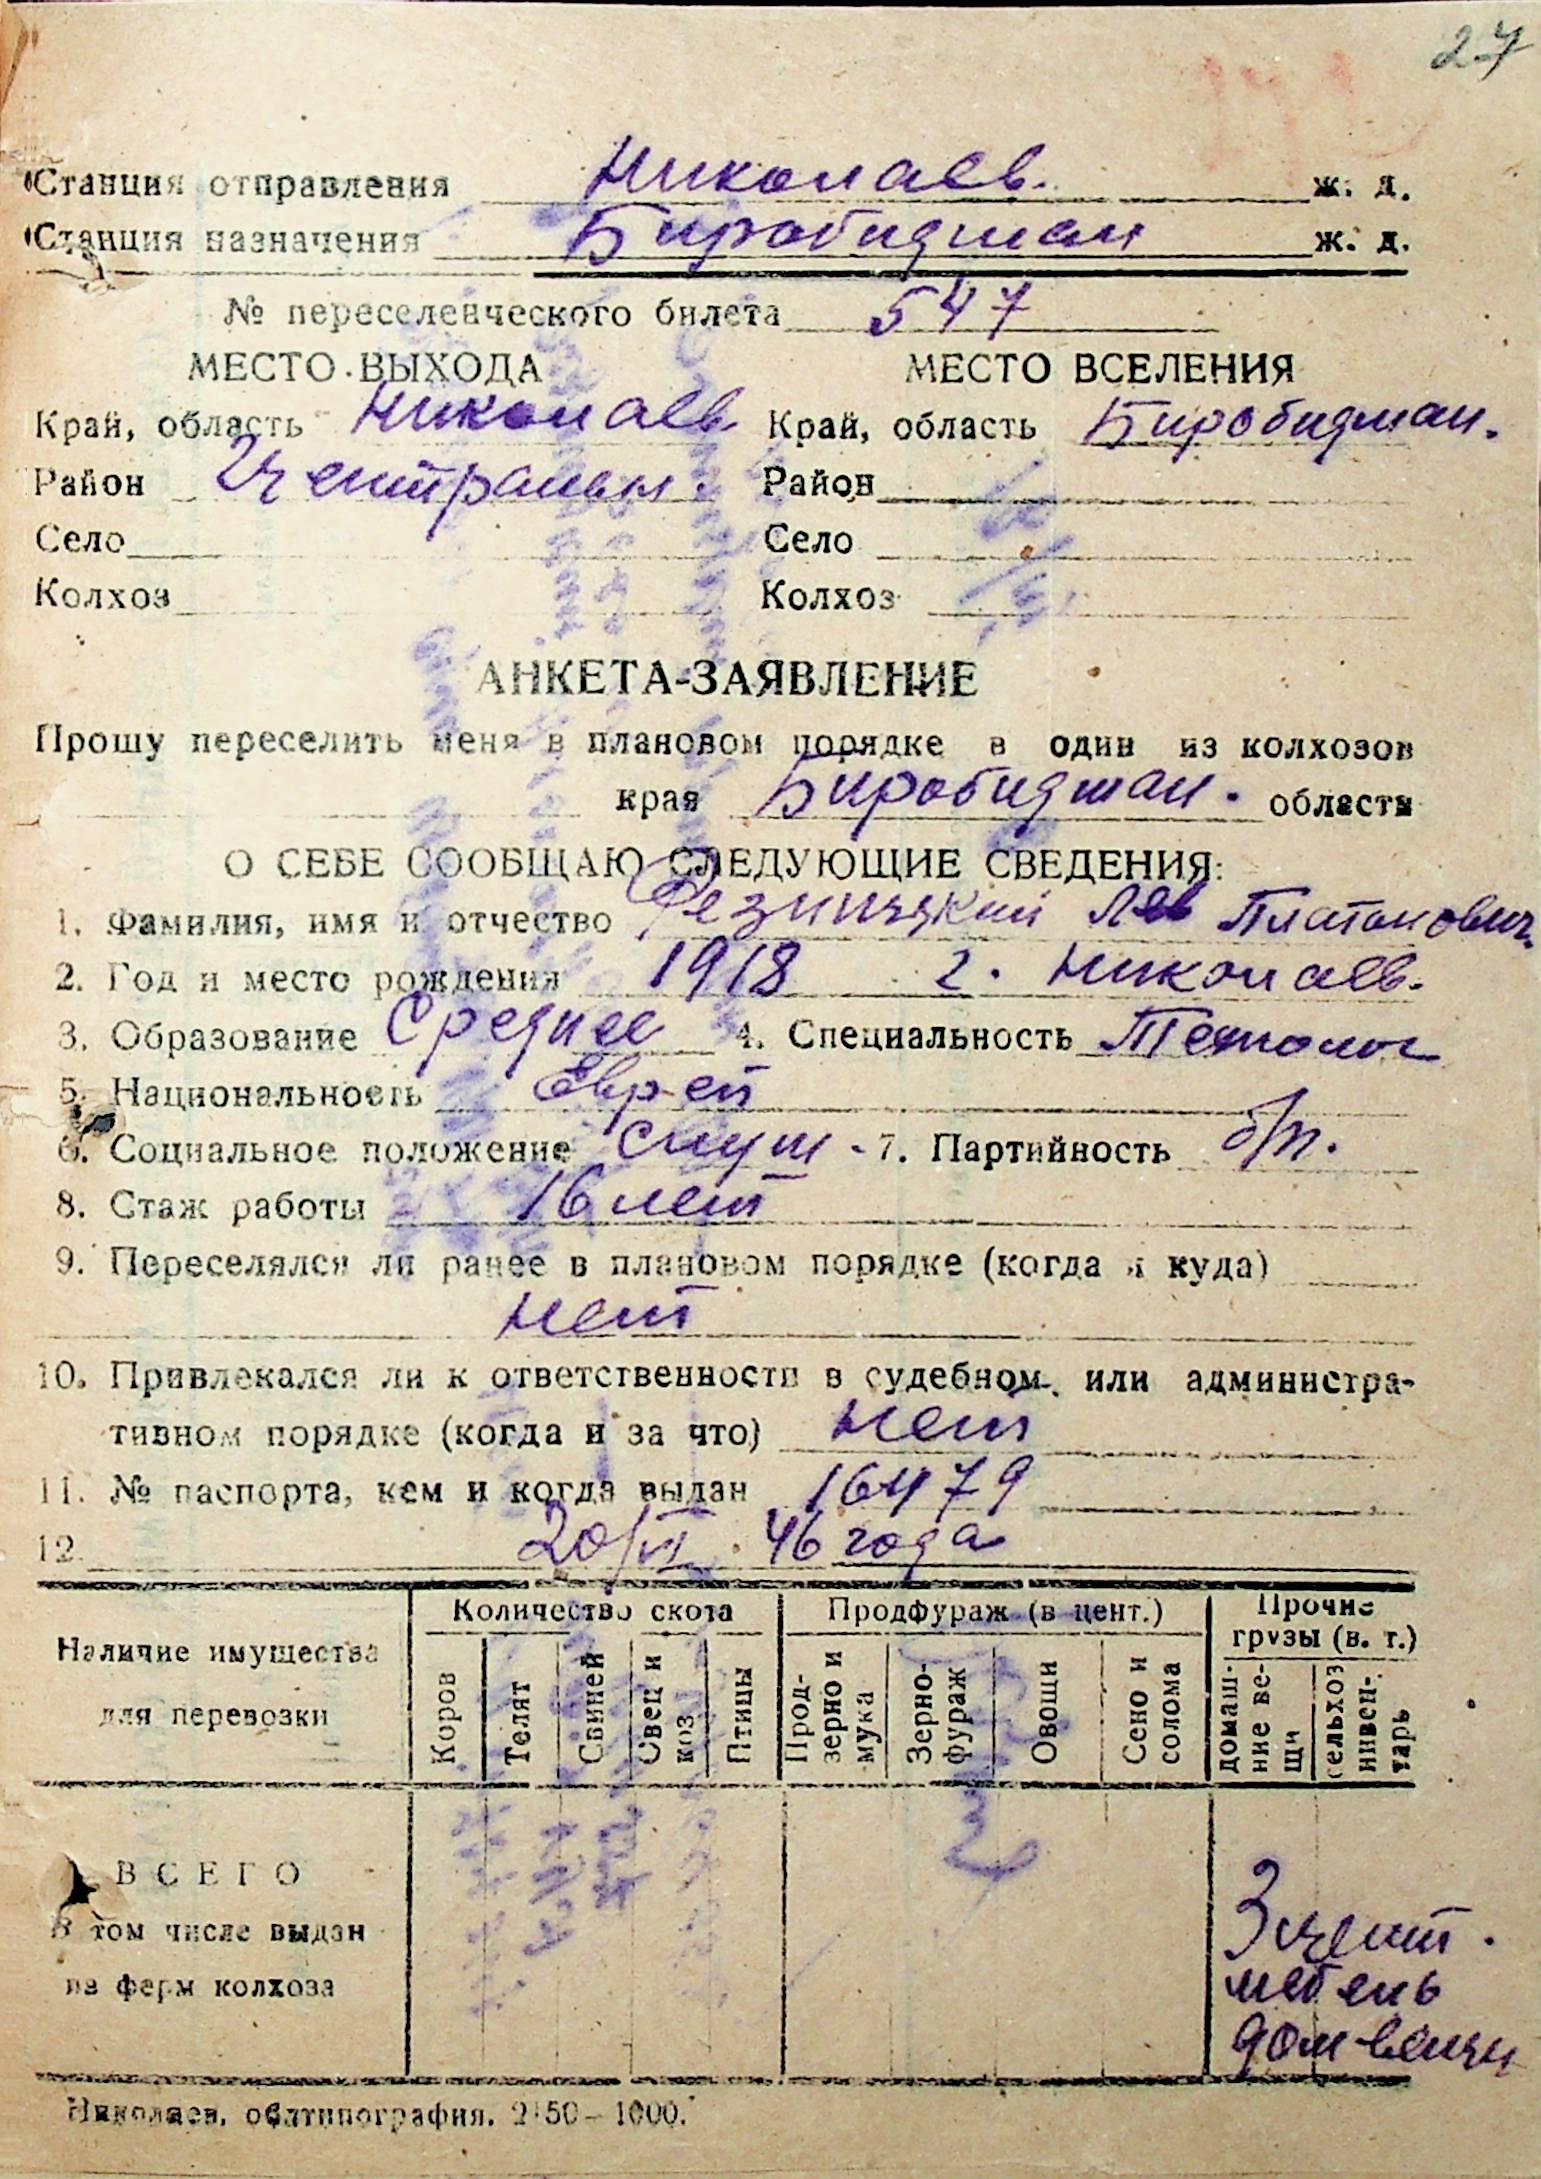 27
Станция отправления Николаев. ж. д.
Станция назначения Биробиджан ж. д.
№ переселенческого билета 547
МЕСТО ВЫХОДА МЕСТО ВСЕЛЕНИЯ
Край, область Николаев Край, область Биробиджан.
Район Централын. Район
Село Село
Колхоз Колхоз
АНКЕТА-ЗАЯВЛЕНИЕ
Прошу переселить меня в плановом порядке в один из колхозов
края Биробиджан. области
О СЕБЕ СООБЩАЮ СЛЕДУЮЩИЕ СВЕДЕНИЯ:
1. Фамилия, имя и отчество Резницкий Лев Платонович.
2. Год и место рождения 1918 г. Николаев.
3. Образование Среднее 4. Специальность
5. Национальность Еврей
6. Социальное положение служ. 7. Партийность б/п.
8. Стаж работы 16 лет
9. Переселялся ли ранее в плановом порядке (когда и куда)
нет
10. Привлекался ли к ответственности в судебном или администра-
тивном порядке (когда и за что) нет
11. № паспорта, кем и когда выдан 16479
12. 20/VI. 46 года
Наличие имущества для перевозки
Количество скота
Продфураж (в цент.)
Прочие грузы (в. т.)
Коров
Телят
Свиней
Овец и коз
Птицы
Прод-зерно и мука
Зерно-фураж
Овощи
Сено и солома
домаш-ние ве-щи
сельхоз инвен-тарь
ВСЕГО
В том числе выдан
из ферм колхоза
3 цент.
мебель
дом-вещи
Николаев, облтипография. 2150–1000.